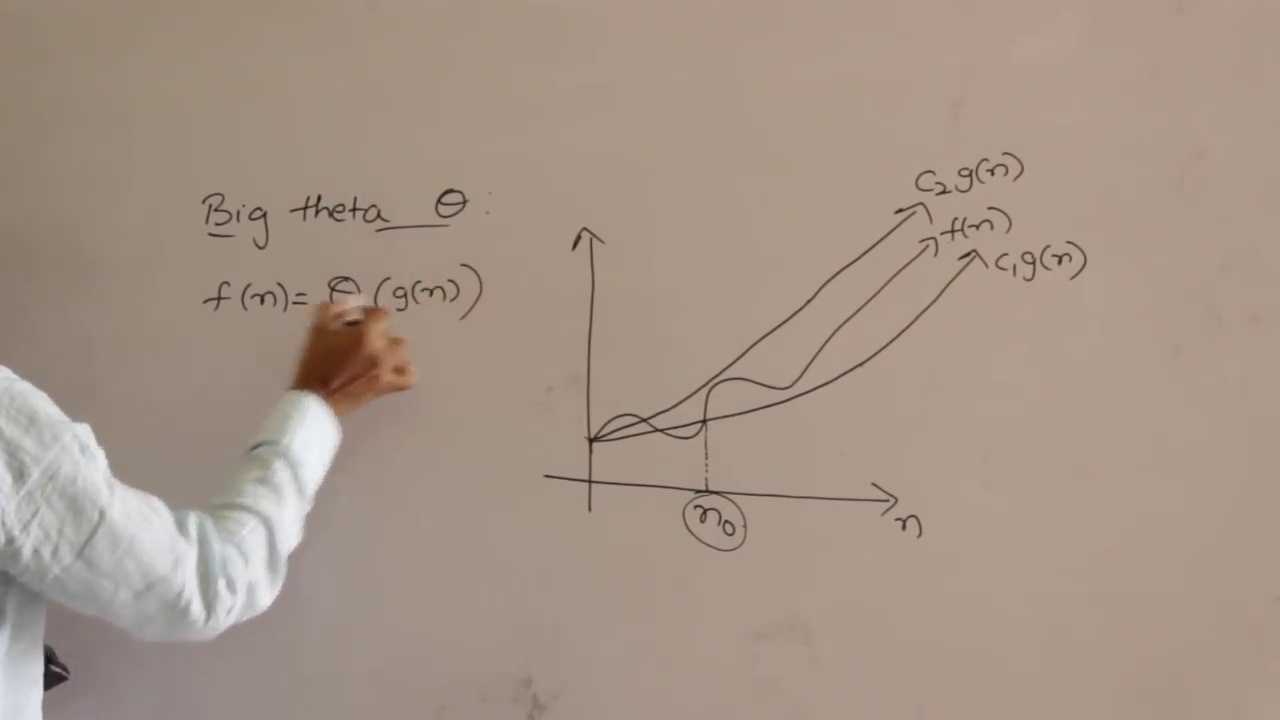 Big theta θ :
f(n) = θ (g(n))
c₂g(n)
f(n)
c₁g(n)
n₀
n